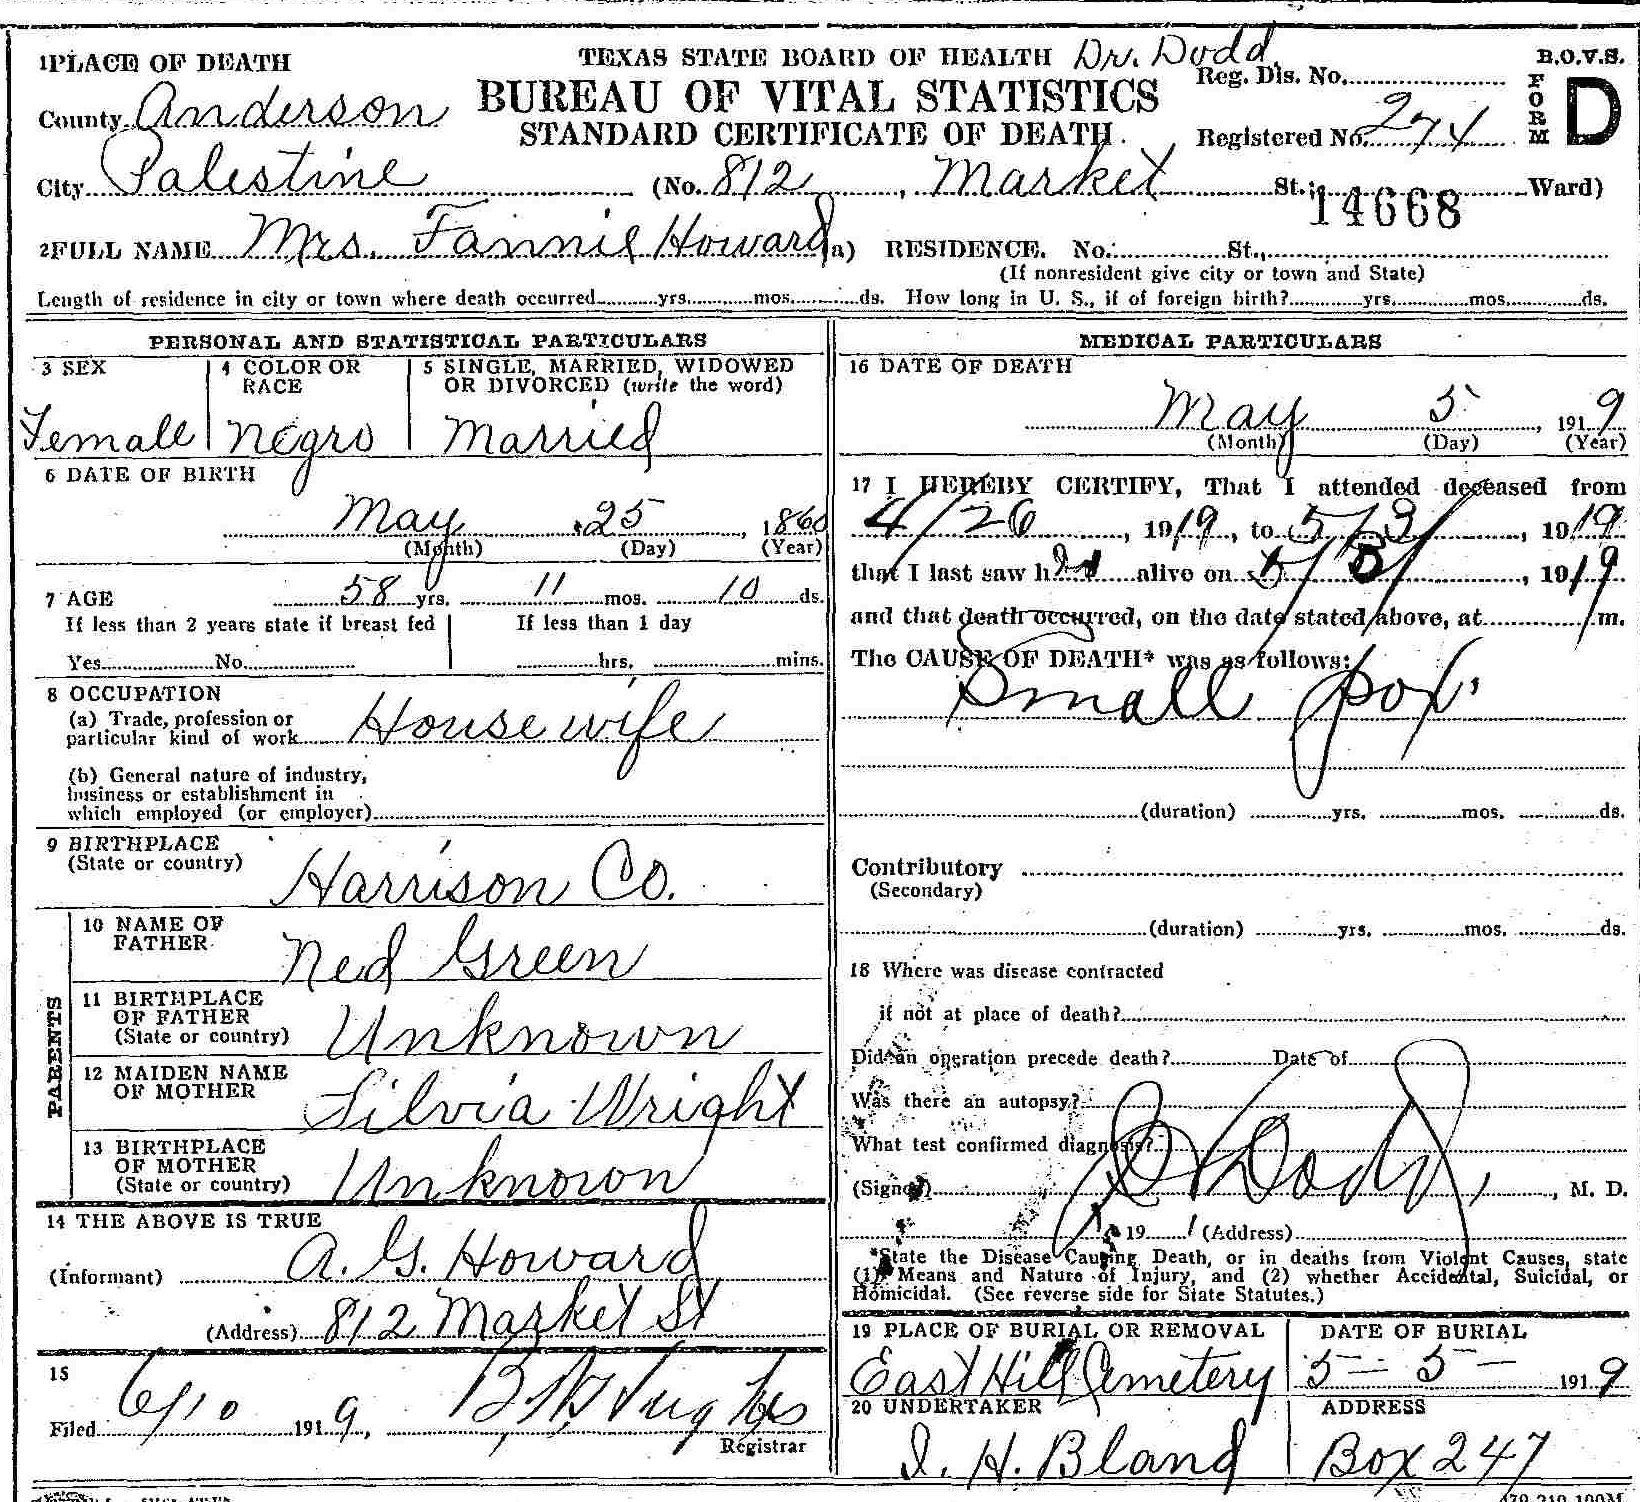 1 PLACE OF DEATH
TEXAS STATE BOARD OF HEALTH Dr. Dodd
B.O.V.S.
Reg. Dis. No.
County Anderson
BUREAU OF VITAL STATISTICS
FORM D
STANDARD CERTIFICATE OF DEATH.
Registered No. 274
City Palestine (No. 812, Market St.; Ward)
14668
2 FULL NAME Mrs. Fannie Howard a) RESIDENCE. No. St.,
(If nonresident give city or town and State)
Length of residence in city or town where death occurred yrs. mos. ds. How long in U. S., if of foreign birth? yrs. mos. ds.
PERSONAL AND STATISTICAL PARTICULARS
3 SEX
Female
4 COLOR OR RACE
Negro
5 SINGLE, MARRIED, WIDOWED
OR DIVORCED (write the word)
Married
6 DATE OF BIRTH
May 25, 1860
(Month) (Day) (Year)
7 AGE 58 yrs. 11 mos. 10 ds.
If less than 2 years state if breast fed
If less than 1 day
Yes No
hrs. mins.
8 OCCUPATION
(a) Trade, profession or
particular kind of work Housewife
(b) General nature of industry,
business or establishment in
which employed (or employer)
9 BIRTHPLACE
(State or country) Harrison Co.
PARENTS
10 NAME OF
FATHER Ned Green
11 BIRTHPLACE
OF FATHER
(State or country) Unknown
12 MAIDEN NAME
OF MOTHER Silvia Wright
13 BIRTHPLACE
OF MOTHER
(State or country) Unknown
14 THE ABOVE IS TRUE
(Informant) A. G. Howard
(Address) 812 Market St
15
Filed 6/10 1919,
Registrar
MEDICAL PARTICULARS
16 DATE OF DEATH
May 5, 1919
(Month) (Day) (Year)
17 I HEREBY CERTIFY, That I attended deceased from
4/26, 1919, to 5/3/, 1919
that I last saw her alive on 5/3/, 1919
and that death occurred, on the date stated above, at m.
The CAUSE OF DEATH* was as follows:
Small pox
(duration) yrs. mos. ds.
Contributory
(Secondary)
(duration) yrs. mos. ds.
18 Where was disease contracted
if not at place of death?
Did an operation precede death? Date of
Was there an autopsy?
What test confirmed diagnosis?
(Signed) Dodd, M. D.
19 (Address)
*State the Disease Causing Death, or in deaths from Violent Causes, state
(1) Means and Nature of Injury, and (2) whether Accidental, Suicidal, or
Homicidal. (See reverse side for State Statutes.)
19 PLACE OF BURIAL OR REMOVAL
East Hill Cemetery
DATE OF BURIAL
5 - 5 - 1919
20 UNDERTAKER
I. H. Bland
ADDRESS
Box 247